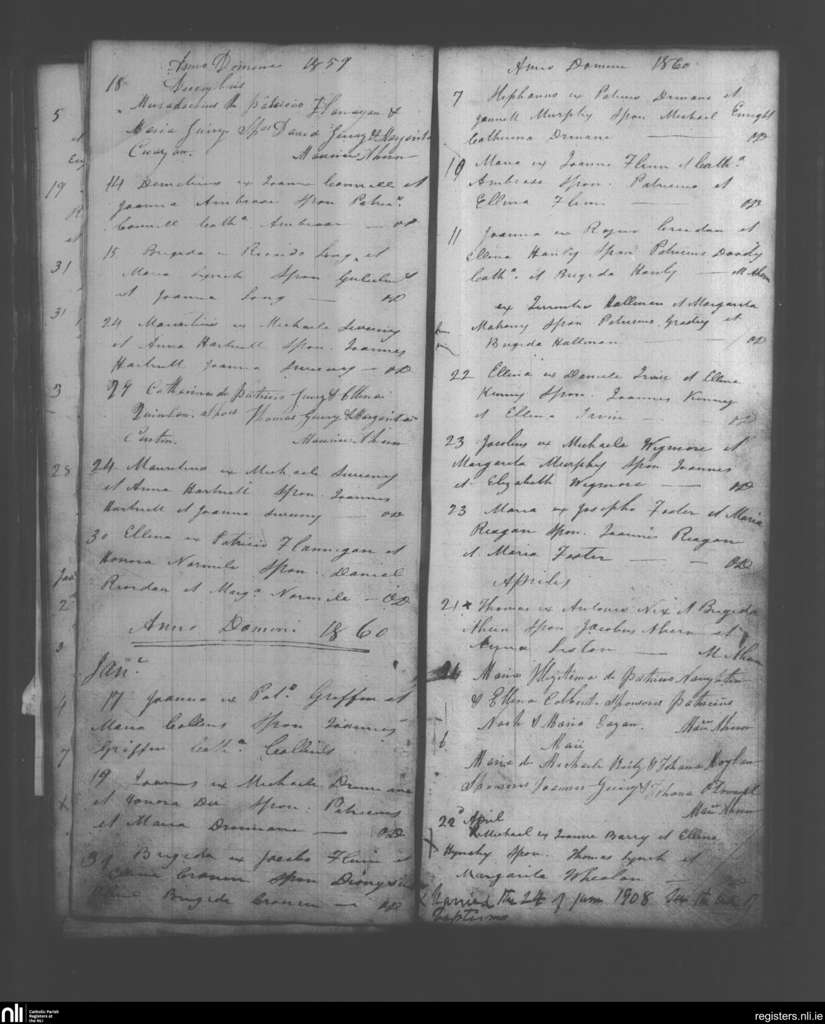 Anno Domini 1859
18 Decembris
Maria Guiry Spss David Guiry & Margarita
Maurice Ahern
14 Demetrius ex Joanne Connell et
Joanna Ambrose Spon Patric
Connell Cath a Ambrose — OD
15 Brigida Ricardo Long et
Maria Lynch Spon Gulielm
et Joanna Long — OD
24 Mauritius ex Michaele Sweeny
et Anna Hartnett Spon. Joannes
Hartnett Joanna Sweeny — OD
29 Catharina de Patricio Guiry & Ellena
Quinlan. Spss Thomas Guiry & Margarita
Curtin. Maurice Ahern
24 Mauritius ex Michaele Sweeny
et Anna Hartnett Spon. Joannes
Hartnett et Joanna Sweeny — OD
30 Ellena ex Patricio Flannigan et
Honora Normile Spon. Daniel
Riordan et Marg a Normile — OD
Anno Domini 1860
Jan
17 Joanna ex Pat o Griffin et
Maria Collins Spon Joannes
Griffin Cath a Collins
19 Joannes ex Michaele Drennane
et Honora Dee Spon. Patricius
et Maria Drennane — OD
Brigida ex Jacobo Flinn et
Cronin Spon Dionysius
Brigida Cronin — OD
5
19
31
31
3
28
Jan
2
3
4
7
Anno Domini 1860
7 Stephanus ex Patricio Drenane et
Murphy Spon Michael Enright
Catherina Drenane — OD
10 Maria ex Joanne Flinn et Cath a
Ambrose Spon. Patricius et
Ellena Flinn — OD
11 Joanna ex Rogero Creedan et
Ellena Hanly Spon Patricius Doody
Cath a et Brigida Hanly — M Ahern
ex Terrentio Hallinan et Margarita
Mahony Spon Patricius Grady et
Brigida Hallinan — OD
22 Ellena ex Daniele Irvin et Ellena
Kenny Spon. Joannes Kenny
et Ellena Irvin — OD
23 Jacobus ex Michaele Wigmore et
Margarita Murphy Spon Joannes
et Elizabeth Wigmore — OD
23 Maria ex Josepho Fester et Maria
Reagan Spon. Joannes Reagan
et Maria Fester — OD
Aprilis
21 x Thomas ex Antonio Nix et Brigida
Ahern Spon Jacobus Ahern et
M Ahern
24 Maria Illegitima de Patricio Naughton
& Ellena Colbert. Sponsores Patricius
Nash & Maria Eagan. Mau Ahern
6 Maii
Maria de Michaele & Johana
Sponsores Joannes Guiry & Johana
Mau Ahern
22 d April
Michael ex Joanne Barry et Ellena
Spon. Thomas Lynch et
Margarita Whealan —
x Married the 24 of June 1908 See the end of
Baptisms
nli
Catholic Parish
Registers at
the NLI
registers.nli.ie